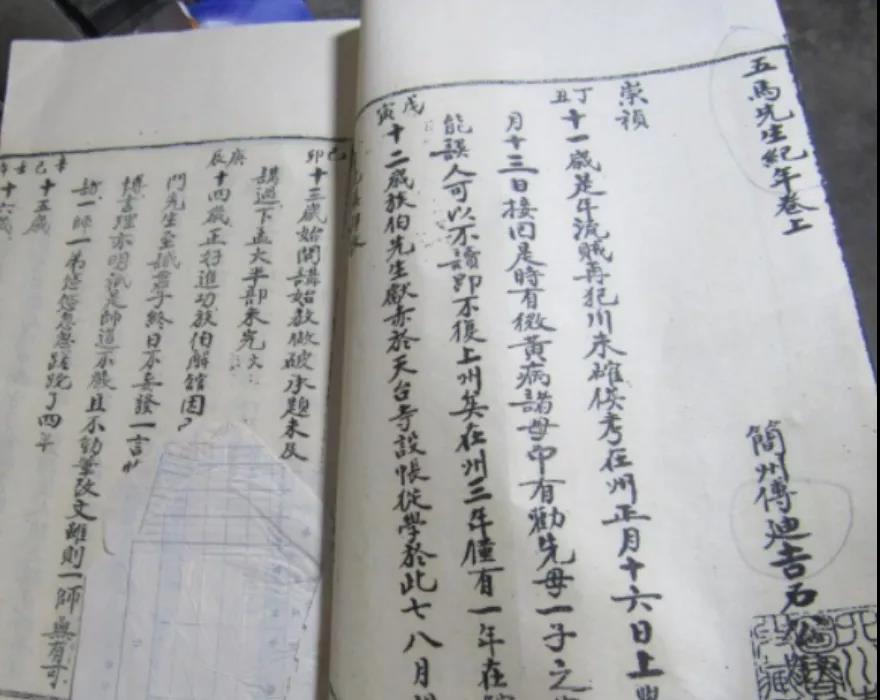 五馬先生紀年卷上
簡州傅迪吉石公
崇禎
丁丑
十一歲是年流賊再犯川未確侯考在州正月十六日上
月十三日接回是時有微黃病諸母中有勸先母一子之
能誤人可以不讀即不復上州矣在州三年僅有一年在
戊寅
十二歲族伯先生獻赤於天台寺設帳從學於此七八月
己卯
十三歲始開講始教做破承題未及
講過下孟大半部未完
庚辰
十四歲正好進功族伯解館因
門先生至誠君子終日不妄發一言
博書理亦明試是師道不嚴且不勤筆改文雖則一師無有可
訪一師一弟悠悠忽忽蹉跎了四年
辛巳
十五歲
十六歲